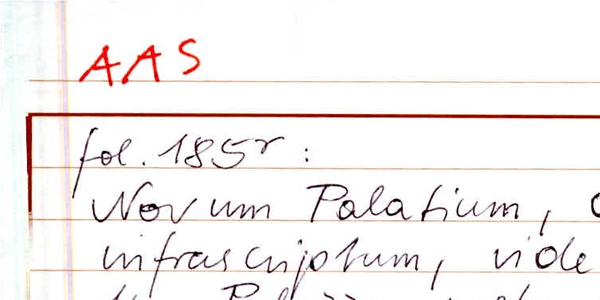 AAS
fol. 185r :
Novum Palatium,
infrascriptum, vide